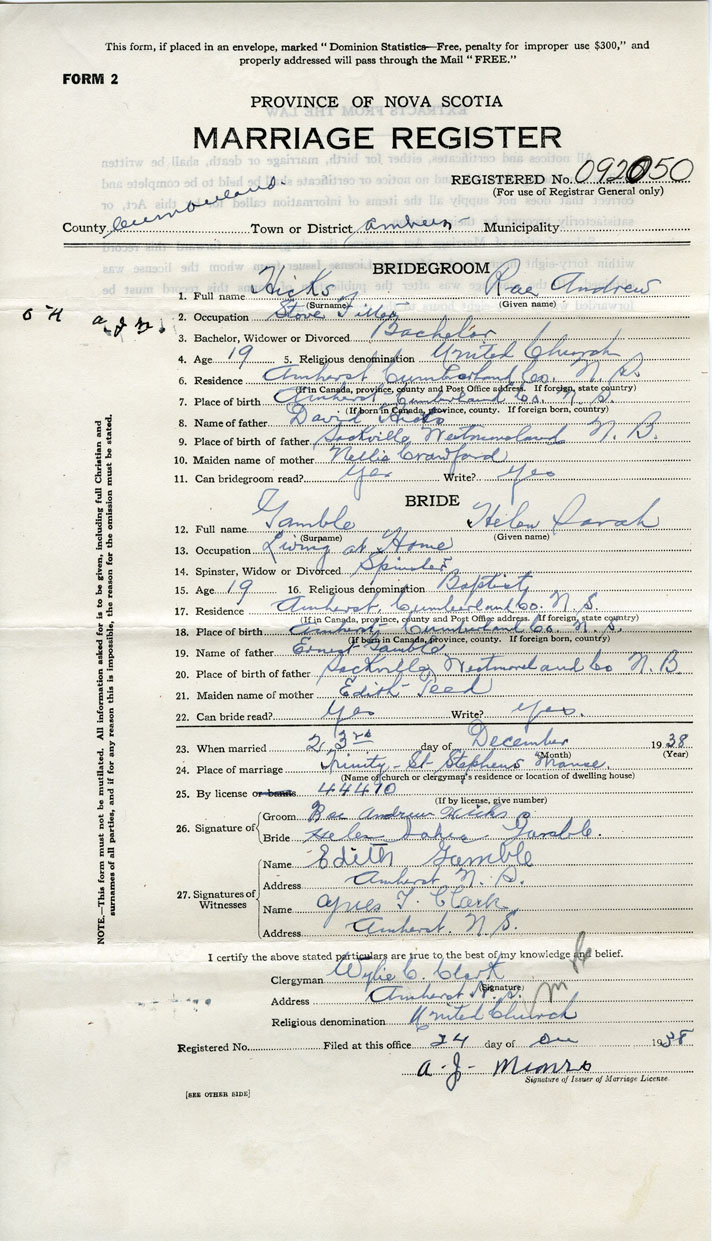 This form, if placed in an envelope, marked "Dominion Statistics—Free, penalty for improper use $300," and
properly addressed will pass through the Mail "FREE."
FORM 2
PROVINCE OF NOVA SCOTIA
MARRIAGE REGISTER
REGISTERED No. 092050
(For use of Registrar General only)
County Cumberland Town or District Amherst Municipality
BRIDEGROOM
1. Full name Hicks Rae Andrew
(Surname) (Given name)
2. Occupation Stove Fitter
3. Bachelor, Widower or Divorced Bachelor
4. Age 19 5. Religious denomination United Church
6. Residence Amherst Cumberland Co. N.S.
(If in Canada, province, county and Post Office address. If foreign, state country)
7. Place of birth Amherst Cumberland Co. N.S.
(If born in Canada, province, county. If foreign born, country)
8. Name of father David Hicks
9. Place of birth of father Sackville Westmorland N.B.
10. Maiden name of mother Nellie Crawford
11. Can bridegroom read? Yes Write? Yes
BRIDE
12. Full name Gamble Helen Sarah
(Surname) (Given name)
13. Occupation Living at Home
14. Spinster, Widow or Divorced Spinster
15. Age 19 16. Religious denomination Baptist
17. Residence Amherst, Cumberland Co. N.S.
(If in Canada, province, county and Post Office address. If foreign, state country)
18. Place of birth Amherst Cumberland Co. N.S.
(If born in Canada, province, county. If foreign born, country)
19. Name of father Ernest Gamble
20. Place of birth of father Sackville Westmoreland Co N.B.
21. Maiden name of mother Edith Teed
22. Can bride read? Yes Write? Yes.
23. When married 23rd day of December 1938
(Month) (Year)
24. Place of marriage Trinity-St Stephens Manse
(Name of church or clergyman's residence or location of dwelling house)
25. By license or banns 44470
(If by license, give number)
26. Signature of
Groom Rae Andrew Hicks
Bride Helen Gamble.
27. Signatures of Witnesses
Name Edith Gamble
Address Amherst N.S.
Name Agnes T. Clark
Address Amherst. N.S.
I certify the above stated particulars are true to the best of my knowledge and belief.
Clergyman Wylie C. Clark
(Signature)
Address Amherst N.S.
Religious denomination United Church
Registered No. Filed at this office 24 day of Dec 1938
A. J. Munro
Signature of Issuer of Marriage License.
[SEE OTHER SIDE]
NOTE.—This form must not be mutilated. All information asked for is to be given, including full Christian and
surnames of all parties, and if for any reason this is impossible, the reason for the omission must be stated.